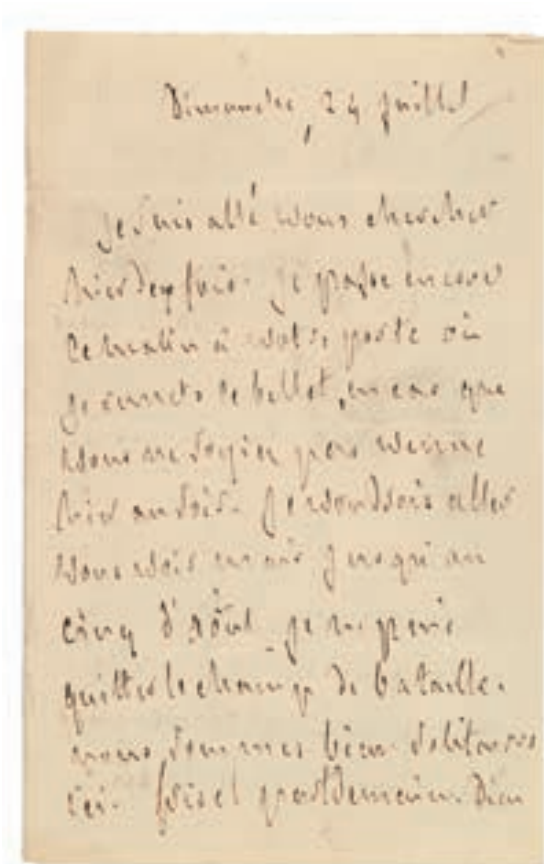 Dimanche, 24 juillet
Je suis allé vous chercher
hier deux fois. Je passe encore
ce matin à votre porte où
je remets ce billet, en cas que
vous ne soyiez pas venue
hier au soir. Je voudrois aller
vous voir mais jusqu'au
cinq d'août je ne puis
quitter le champ de bataille.
nous sommes bien solitaires
ici. part demain. Dieu